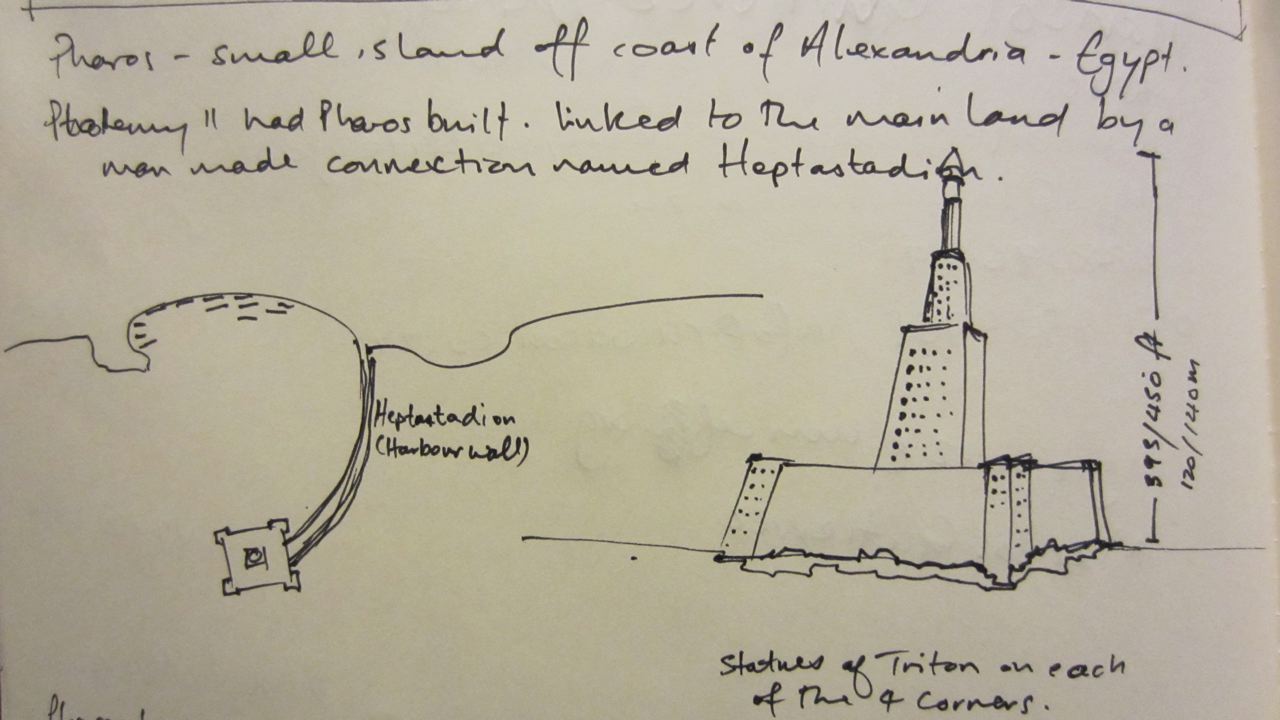 Pharos - small island off coast of Alexandria - Egypt.
Ptolemy II had Pharos built. Linked to the main land by a
man made connection named Heptastadion.
Heptastadion
(Harbour wall)
393/450 ft
120/140m
Statues of Triton on each
of the 4 corners.